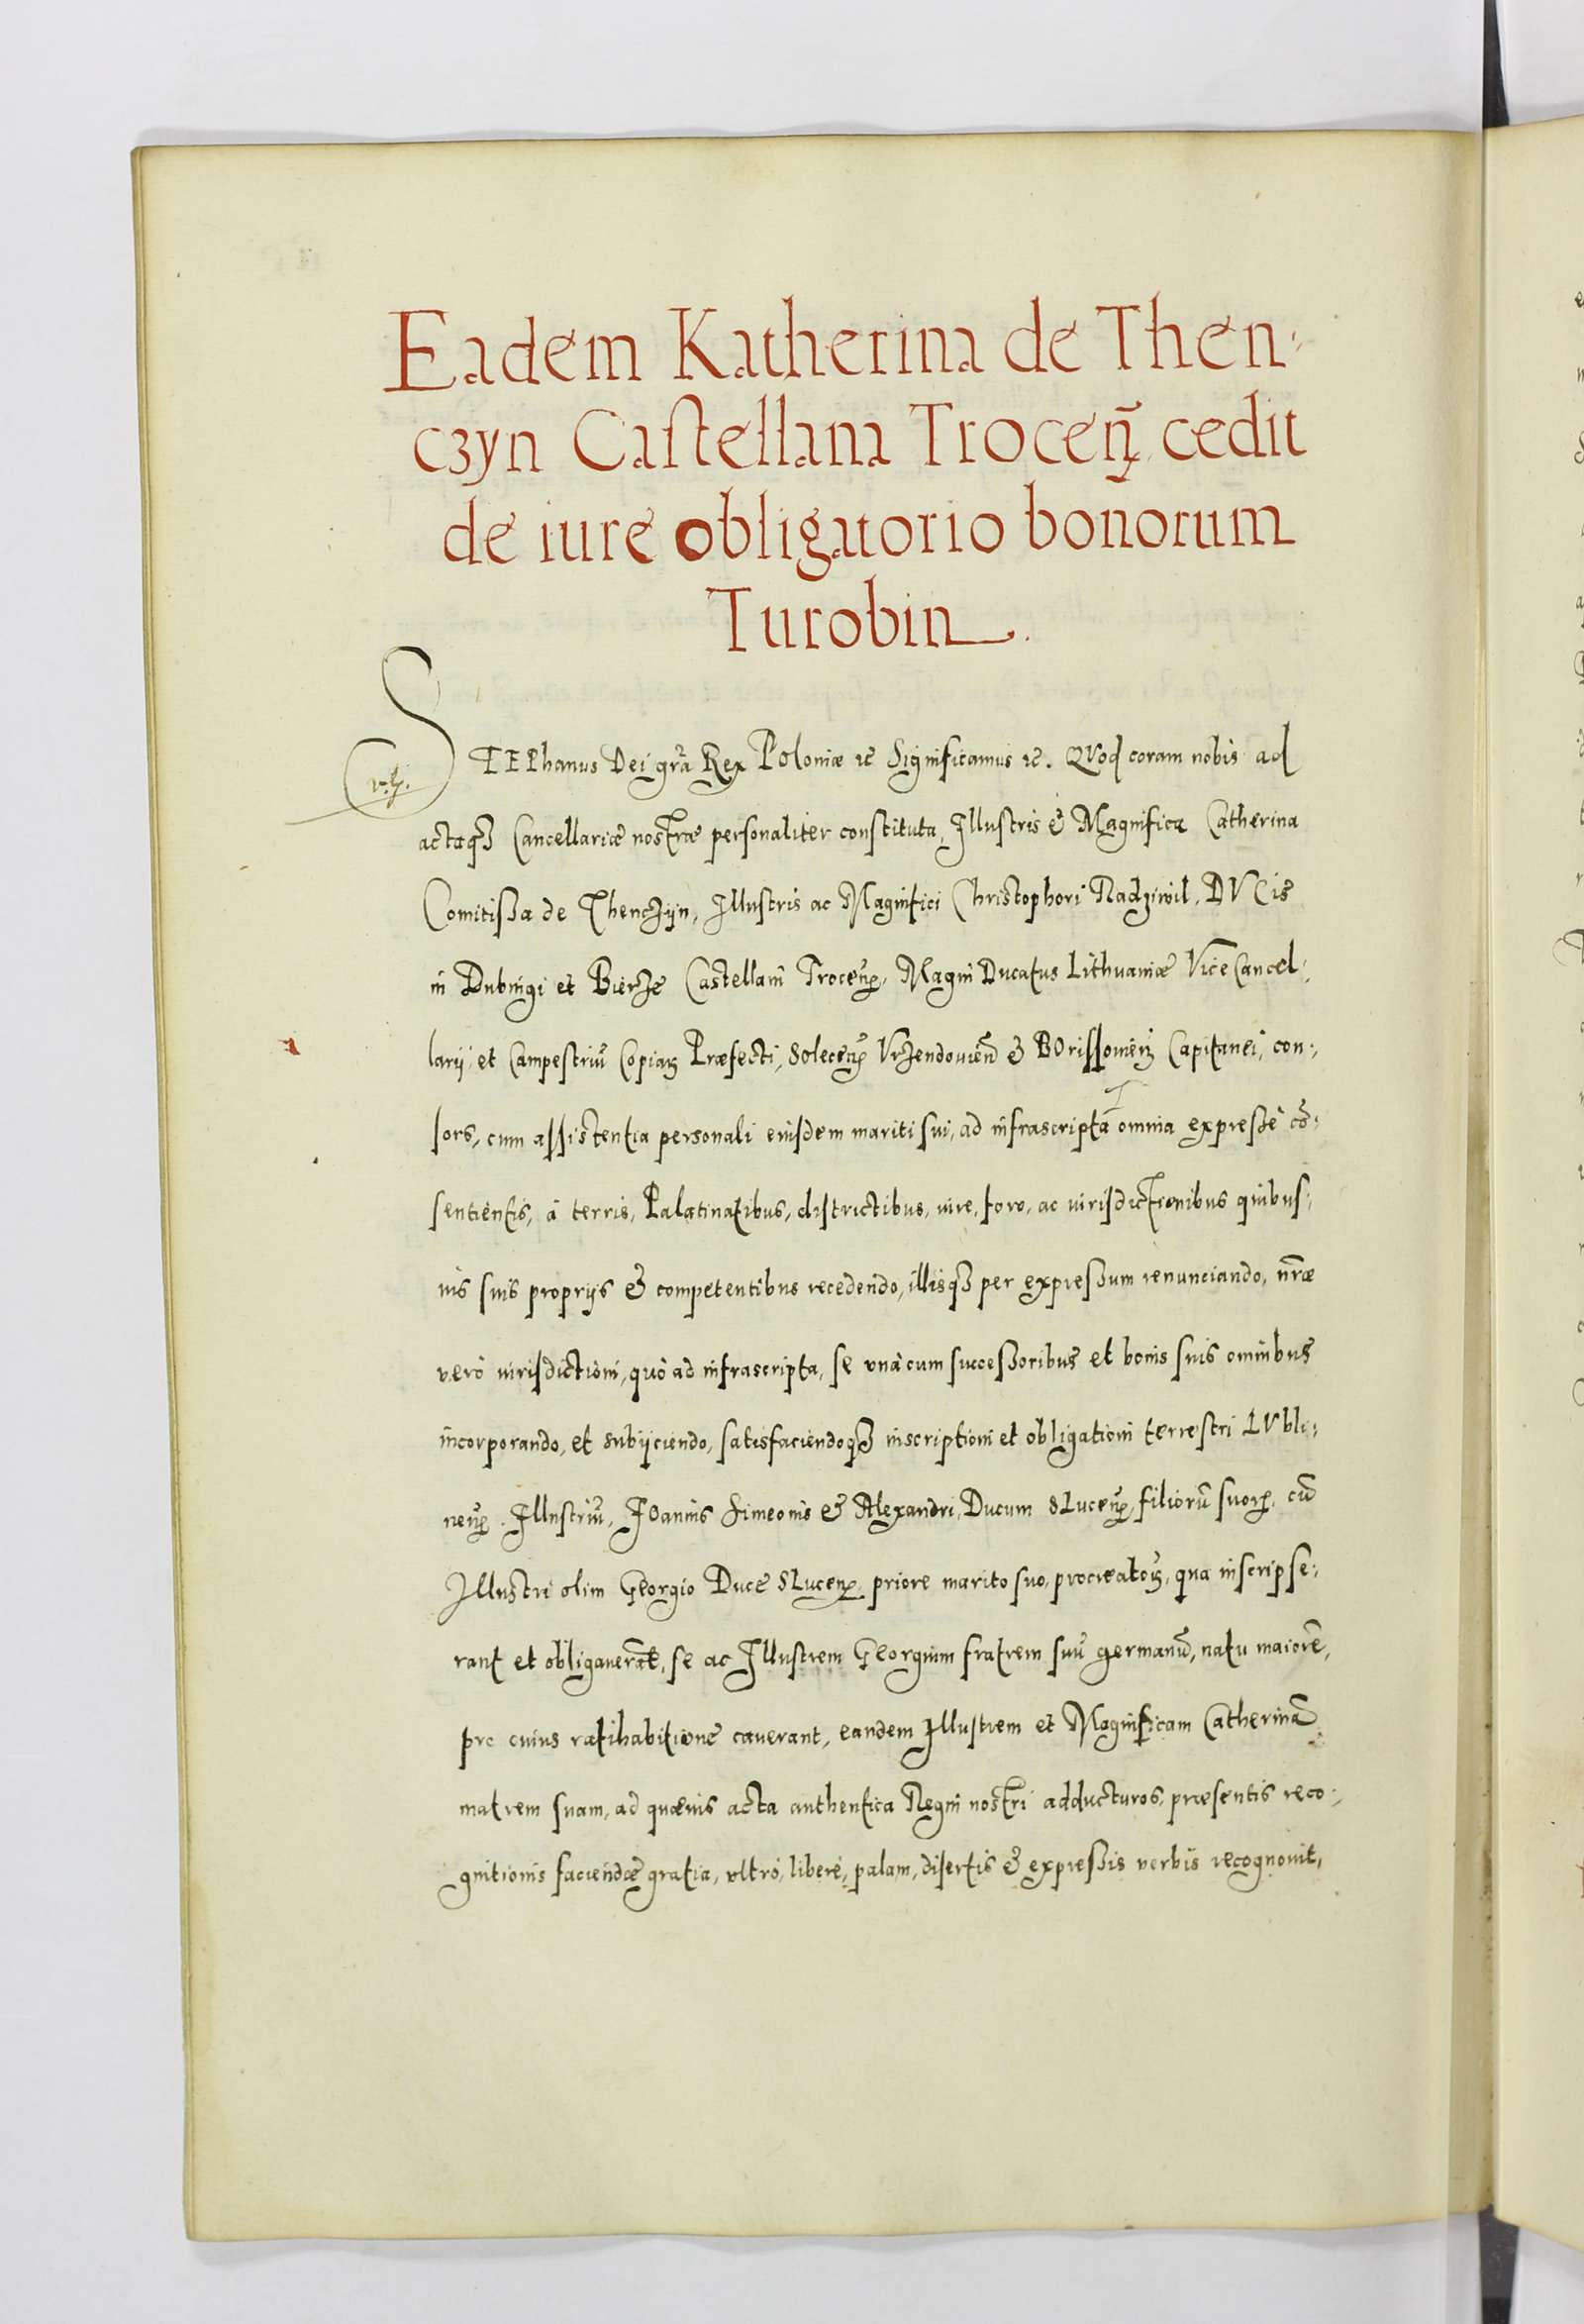 Eadem Katherina de Then-
czyn Castellana Troceñ cedit
de iure obligatorio bonorum
Turobin.
STEPhanus Dei gr̃a Rex Poloniæ ꝛc Significamus ꝛc. QVod coram nobis ad
actaqꝫ Cancellariæ nostræ personaliter constituta, Illustris & Magnifica Catherina
Comitissa de Thenczÿn, Illustris ac Magnifici Christophori Radziwil, DVCis
in Dubingi et Bierże Castellani Troceñ, Magni Ducatus Lithuaniæ Vice Cancel-
larij, et Campestriũ Copiaꝝ Præfecti, Soleceñ Vrzendouieñ & BOrissouieñ Capitanei, con-
sors, cum assistentia personali eiusdem mariti sui, ad infrascripta omnia expressè cõ-
sentientis, à terris, Palatinatibus, districtibus, iure, foro, ac iurisdictionibus quibus-
uis suis proprijs & competentibus recedendo, illisqꝫ per expressum renunciando, nr̃æ
verò iurisdictioni, quò ad infrascripta, se vnà cum successoribus et bonis suis omnibus
incorporando, et subijciendo, satisfaciendoqꝫ inscriptioni et obligationi terrestri LVbli-
neñ. Illustriũ, IOannis Simeonis & Alexandri, Ducum SLuceñ, filiorũ suoꝝ, cũ
Illustri olim GEorgio Duce SLuceñ priore marito suo, procreatoꝝ, qua inscripse-
rant et obligauerãt, se ac Illustrem GEorgium fratrem suũ germanũ, natu maiorẽ,
pro cuius ratihabitione cauerant, eandem Illustrem et Magnificam Catherinã
matrem suam, ad quæuis acta authentica Regni nostri adducturos, præsentis reco-
gnitionis faciendæ gratia, vltrò, liberè, palam, disertis & expressis verbis recognouit,